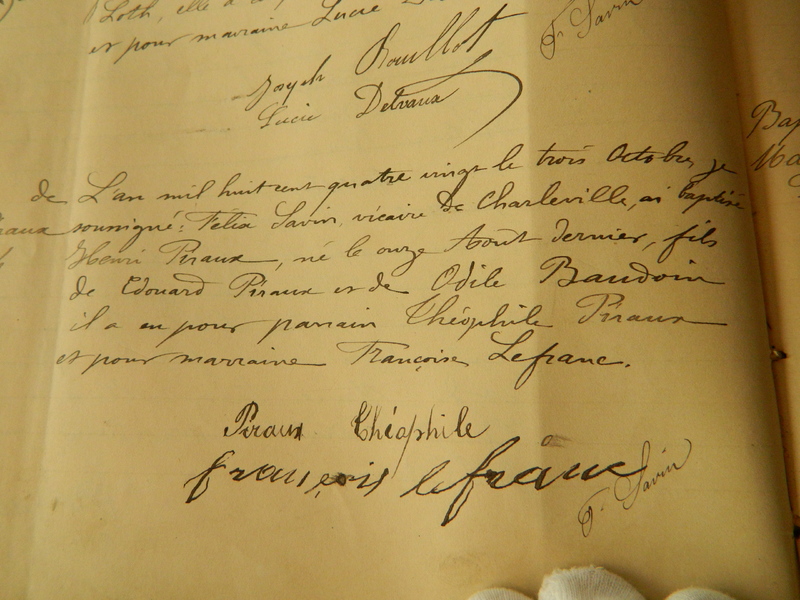 Loth, elle a
et pour marraine Lucie
F. Savin
Joseph Roullot
Lucie Delvaux
Bap
de L'an mil huit cent quatre vingt le trois Octobre, je
iraux soussigné: Felix Savin, vicaire de Charleville, ai baptisé
Henri Piraux, né le onze Aout dernier, fils
de Edouard Piraux et de Odile Baudoin
il a eu pour parrain Théophile Piraux
et pour marraine Françoise Lefranc.
Piraux Théophile
françois lefranc
F. Savin